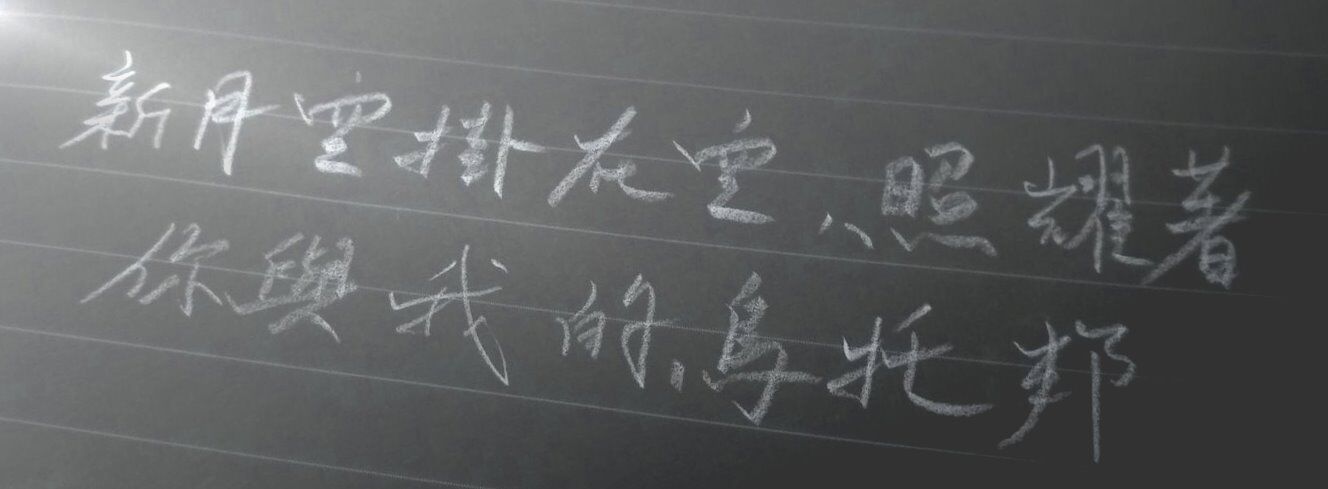 新月空掛在空、照耀著
你與我的烏托邦